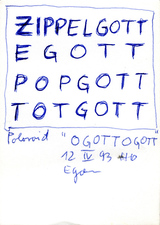 ZIPPELGOTT
EGOTT
POPGOTT
TOTGOTT
Poloroid "OGOTTOGOTT"
12 IV 93
Egon